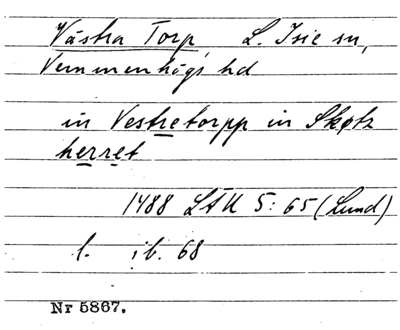 Västra Torp, L. Isie sn,
Vemmenhögs hd
in Vestretorpp in Skøtz
herret
1488 LÄU 5:65 (Lund)
l. ib. 68
Nr 5867.